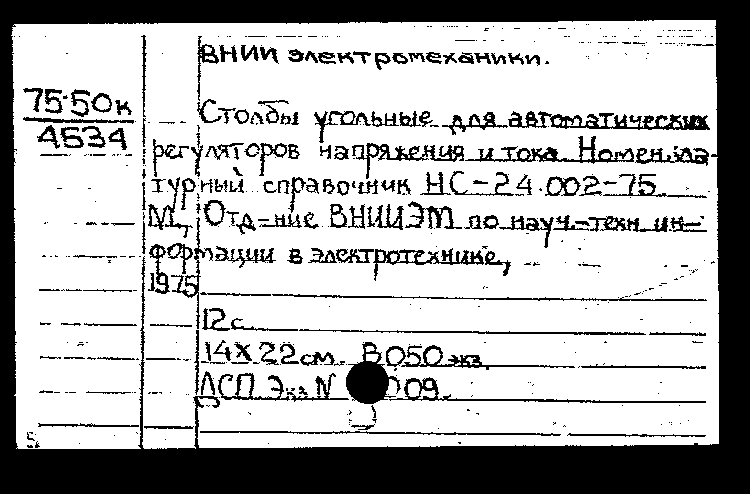 ВНИИ электромеханики.
75-50к
4534
Столбы угольные для автоматических
регуляторов напряжения и тока. Номенкла-
турный справочник НС-24.002-75.
М., Отд-ние ВНИИЭМ по науч.-техн. ин-
формации в электротехнике,
1975
12 с.
14х22 см. 8050 экз.
ДСП. Экз. N 09.
5